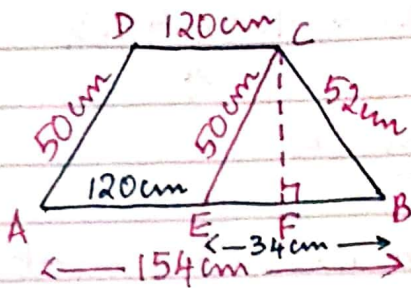 D 120cm C
50cm 50cm 52cm
120cm
A E F B
34cm
154cm